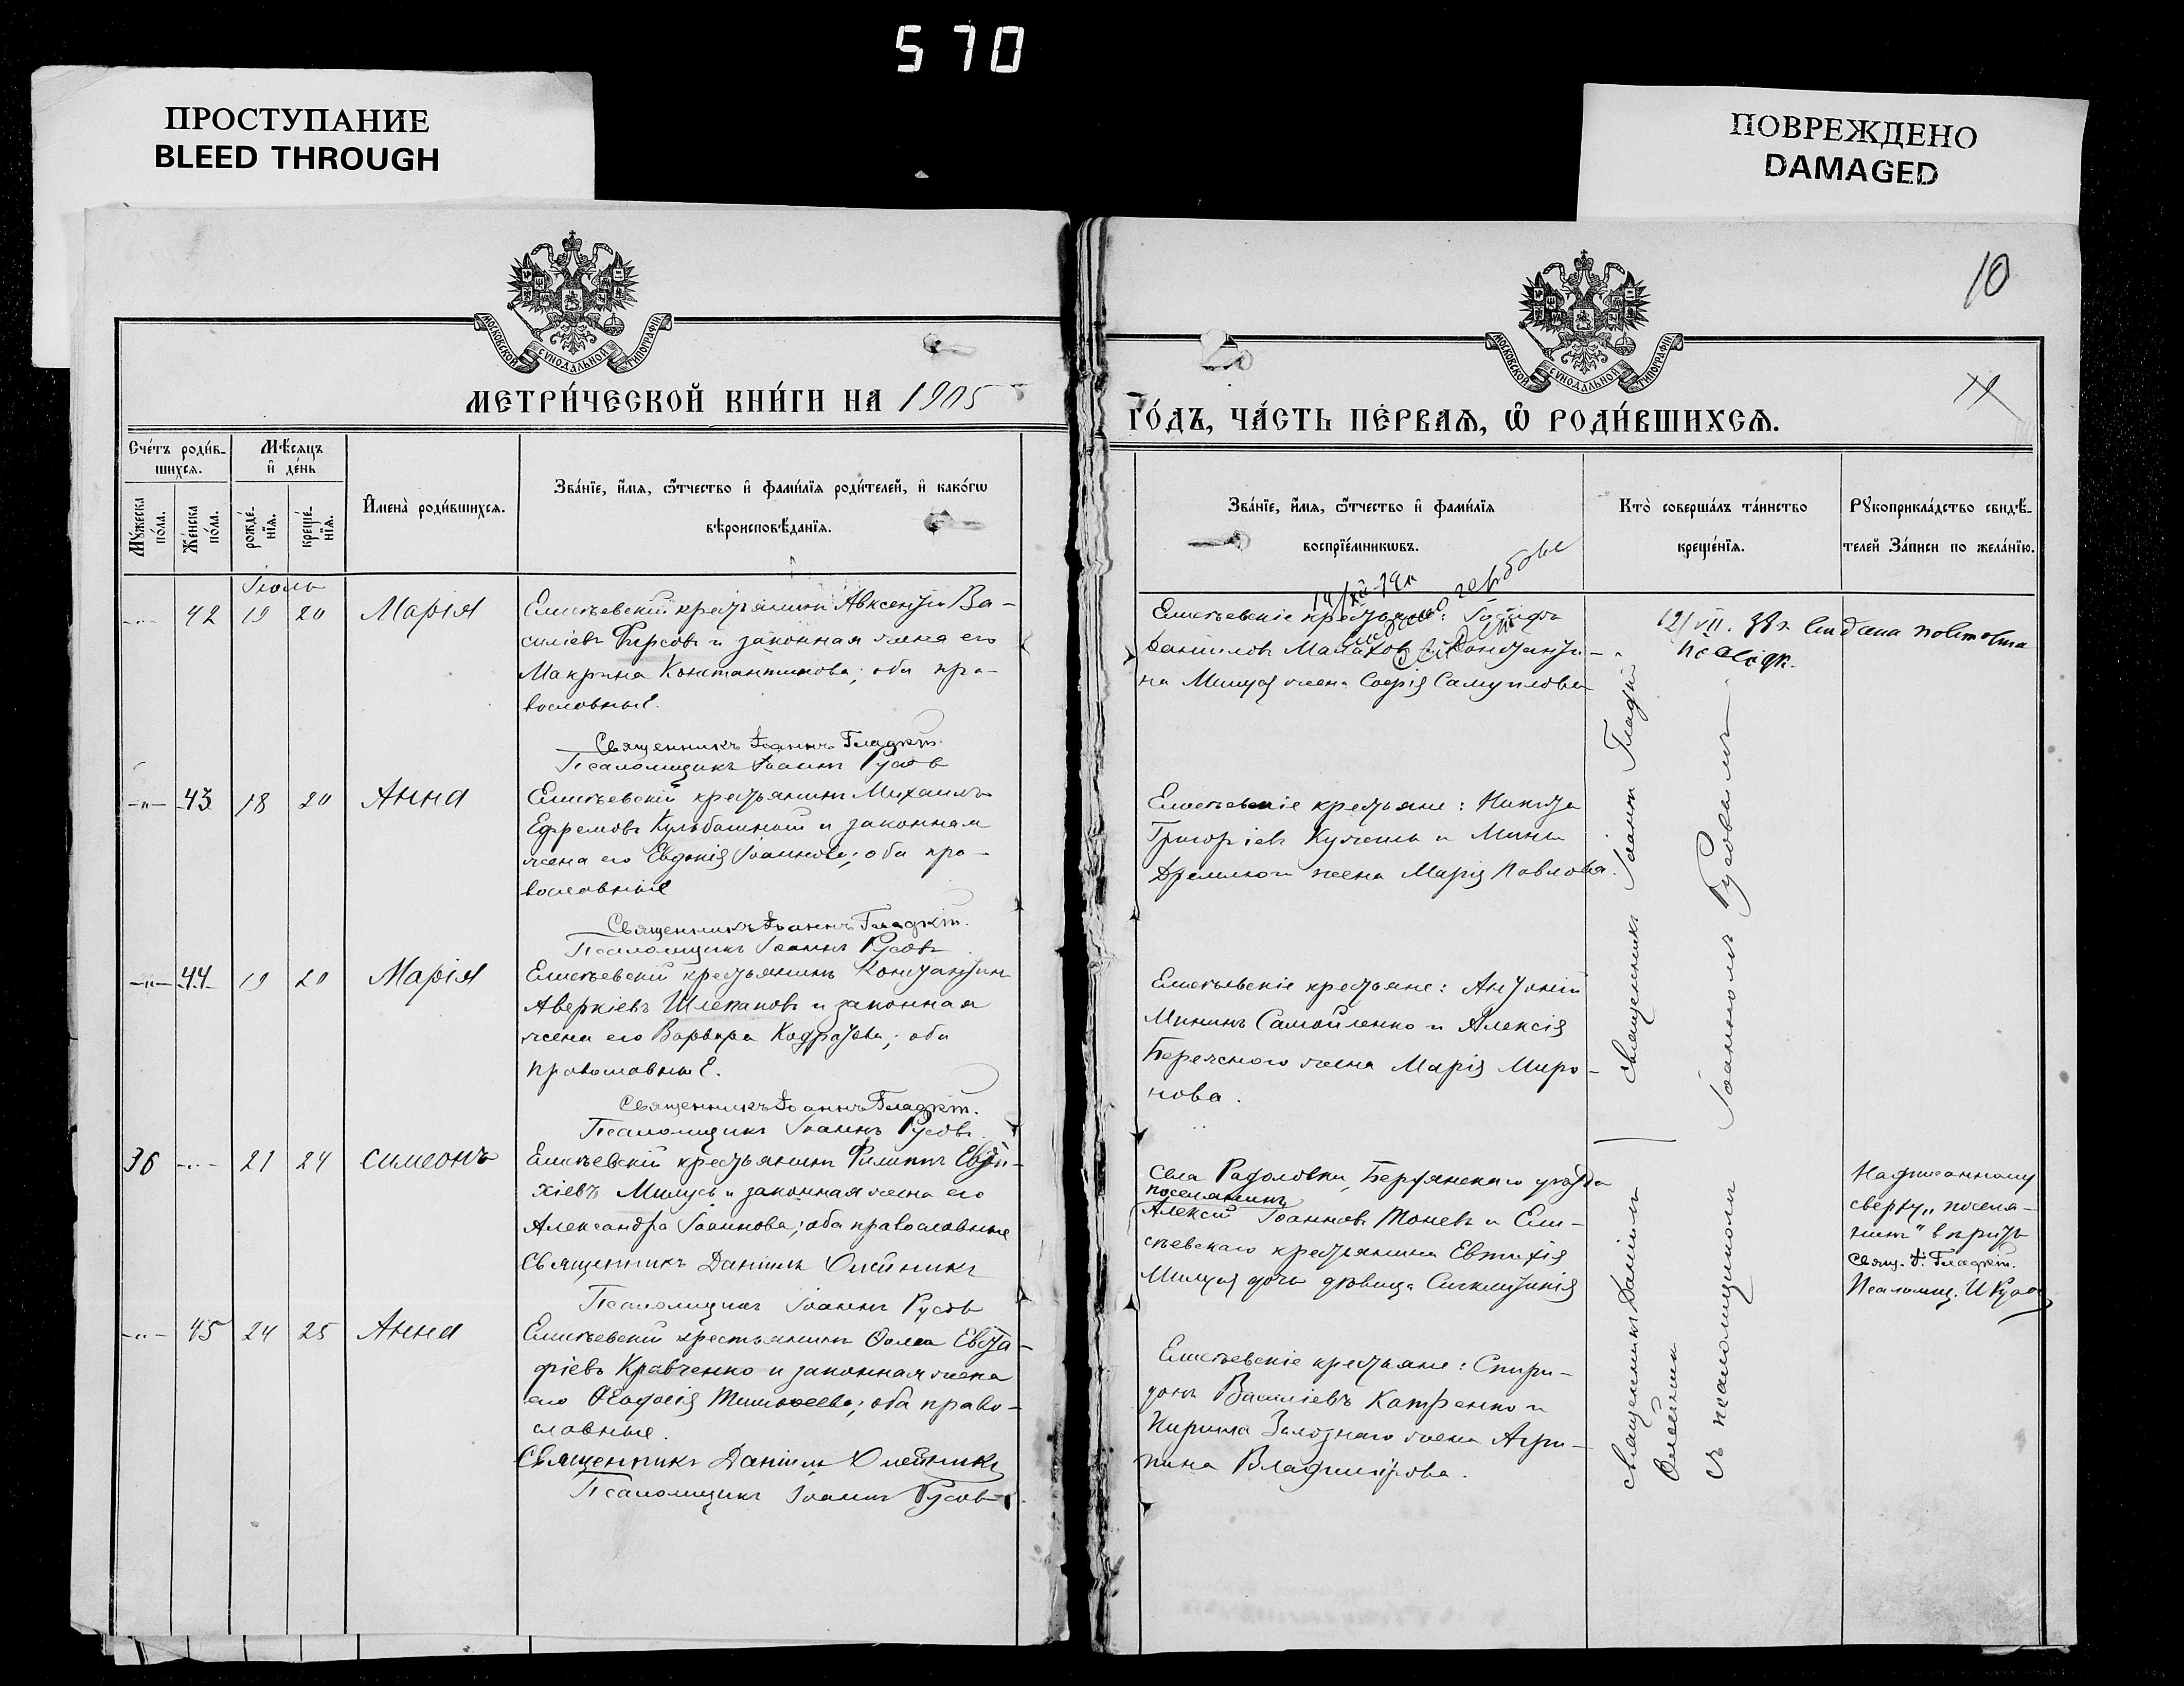 570
ПРОСТУПАНИЕ
BLEED THROUGH
ПОВРЕЖДЕНО
DAMAGED
10
МОСКОВСКОЙ СѴНОДАЛЬНОЙ ТИПОГРАФІИ
МОСКОВСКОЙ СѴНОДАЛЬНОЙ ТИПОГРАФІИ
МЕТРИ́ЧЕСКОЙ КНИ́ГИ НА 1905
ГО́ДЪ, ЧА́СТЬ ПЕ́РВАѦ, Ѡ҆ РОДИ́ВШИХСѦ.
Счетъ роди́в-
шихсѧ.
Мѣ́сяцъ
и҆ де́нь
Мꙋ́жеска по́ла.
Же́нска по́ла.
рожде́-
нїѧ.
креще́-
нїѧ.
И҆мена̀ роди́вшихсѧ.
Зва́нїе, и҆́мѧ, ѻ҆́тчество и҆ фами́лїѧ роди́телей, и҆ како́гѡ
вѣроисповѣ́данїѧ.
Зва́нїе, и҆́мѧ, ѻ҆́тчество и҆ фами́лїѧ
воспрїе́мникѡвъ.
Кто̀ соверша́лъ та́инство
креще́нїѧ.
Рꙋкоприкла́дство свидѣ́-
телей за́писи по жела́нїю.
Іюль
42 19 20 Марія
Елисѣевскій крестьянинъ Авксентій Ва-
силіевъ Фирсовъ и законная жена его
Макрина Константинова; оба пра-
вославные.
Священникъ Іоаннъ Гладкій.
Псаломщикъ Іоаннъ Русовъ
Елисѣевскіе крестьяне: Іосифъ
Даніиловъ Малахов и Константи-
на Милуся жена Софія Самуилова
43 18 20 Анна
Елисѣевскій крестьянинъ Михаилъ
Ефремовъ Кульбашный и законная
жена его Евдокія Іоаннова; оба пра-
вославные
Священникъ Іоаннъ Гладкій.
Псаломщикъ Іоаннъ Русовъ
Елисѣевскіе крестьяне: Никита
Григоріевъ и Мины
жена Марія Павлова.
44 19 20 Марія
Елисѣевскій крестьянинъ Константинъ
Аверкіевъ Шлепаковъ и законная
жена его Варвара Кодратова; оба
православные.
Священникъ Іоаннъ Гладкій.
Псаломщикъ Іоаннъ Русовъ.
Елисѣевскіе крестьяне: Антоній
Мининъ Самойленко и Алексія
Бережного жена Марія Миро-
нова.
Священникъ Іоаннъ Гладкій
36 21 24 Симеонъ
Елисѣевскій крестьянинъ Филиппъ Евти-
хіевъ Милусь и законная жена его
Александра Іоаннова; оба православные
Священникъ Даніилъ Олейникъ
Псаломщикъ Іоаннъ Русовъ
Села Радоловки, Бердянскаго уѣзда
поселянинъ
Алексій Іоанновъ Тоневъ и Ели-
сѣевскаго крестьянина Евтихія
Милуся дочь дѣвица Синклитикія
Надписанному
сверху „поселя-
нинъ" вѣрить
Свящ. І. Гладкій.
Псаломщ. И Русовъ
45 24 25 Анна
Елисѣевскій крестьянинъ Ѳома Евста-
фіевъ Кравченко и законная жена
его Ѳеодосія Тимоѳеева; оба право-
славные.
Священникъ Даніилъ Олейникъ
Псаломщикъ Іоаннъ Русовъ
Елисѣевскіе крестьяне: Спири-
донъ Василіевъ Катренко и
Кирилла Залознаго жена Агри-
пина Владимірова.
Священникъ Даніилъ
Олейникъ
съ псаломщикомъ Іоанномъ Русовымъ